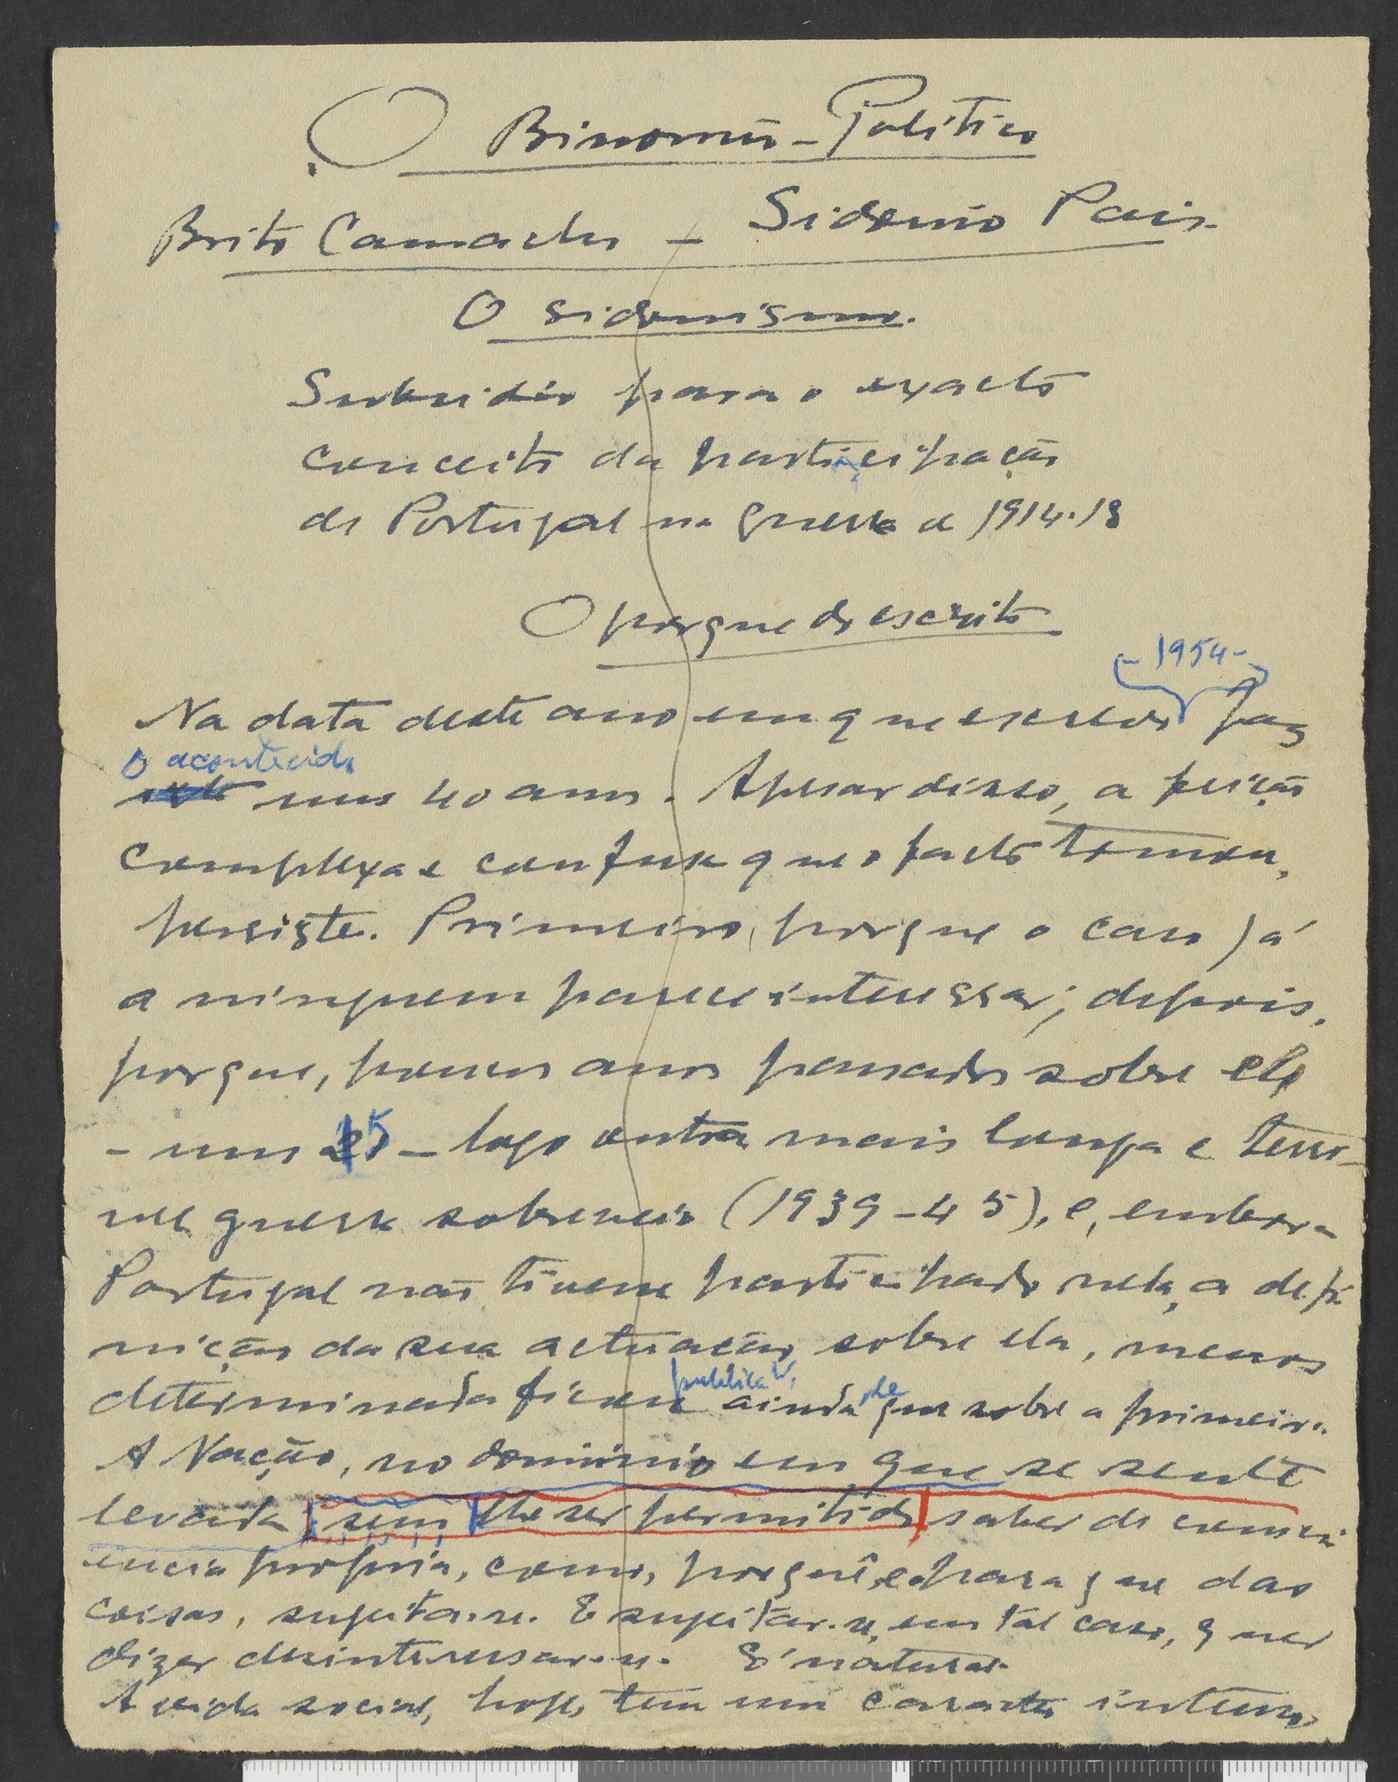 O Binomio-Político
Brito Camacho – Sidonio Pais.
O sidonismo.
Subsidio para o exacto
conceito da participação
de Portugal na guerra de 1914-18
O porque do escrito
- 1954 -
Na data deste ano em que escrevo faz
o acontecido
uns 40 anos. Apesar disso, a feição
complexa e confusa que o facto tomou,
persiste. Primeiro, porque o caso já
a ninguem parece interessar; depois,
porque, poucos anos passados sobre ele
– uns 25 – logo outra mais longa e terri-
vel guerra sobreveio (1939-45), e, embora
Portugal não tivesse participado nela, a defi-
nição da sua actuação sobre ela, menos
publica
determinada ficou ainda do que sobre a primeira.
A Nação, no dominio em que se sente
levada sem lhe ser permitido saber de consci-
encia propria, como, porquê e para que das
coisas, sujeita-se. E sujeitar-se, em tal caso, quer
dizer desinteressar-se. É natural.
A vida social, hoje, tem um caracter intenso,